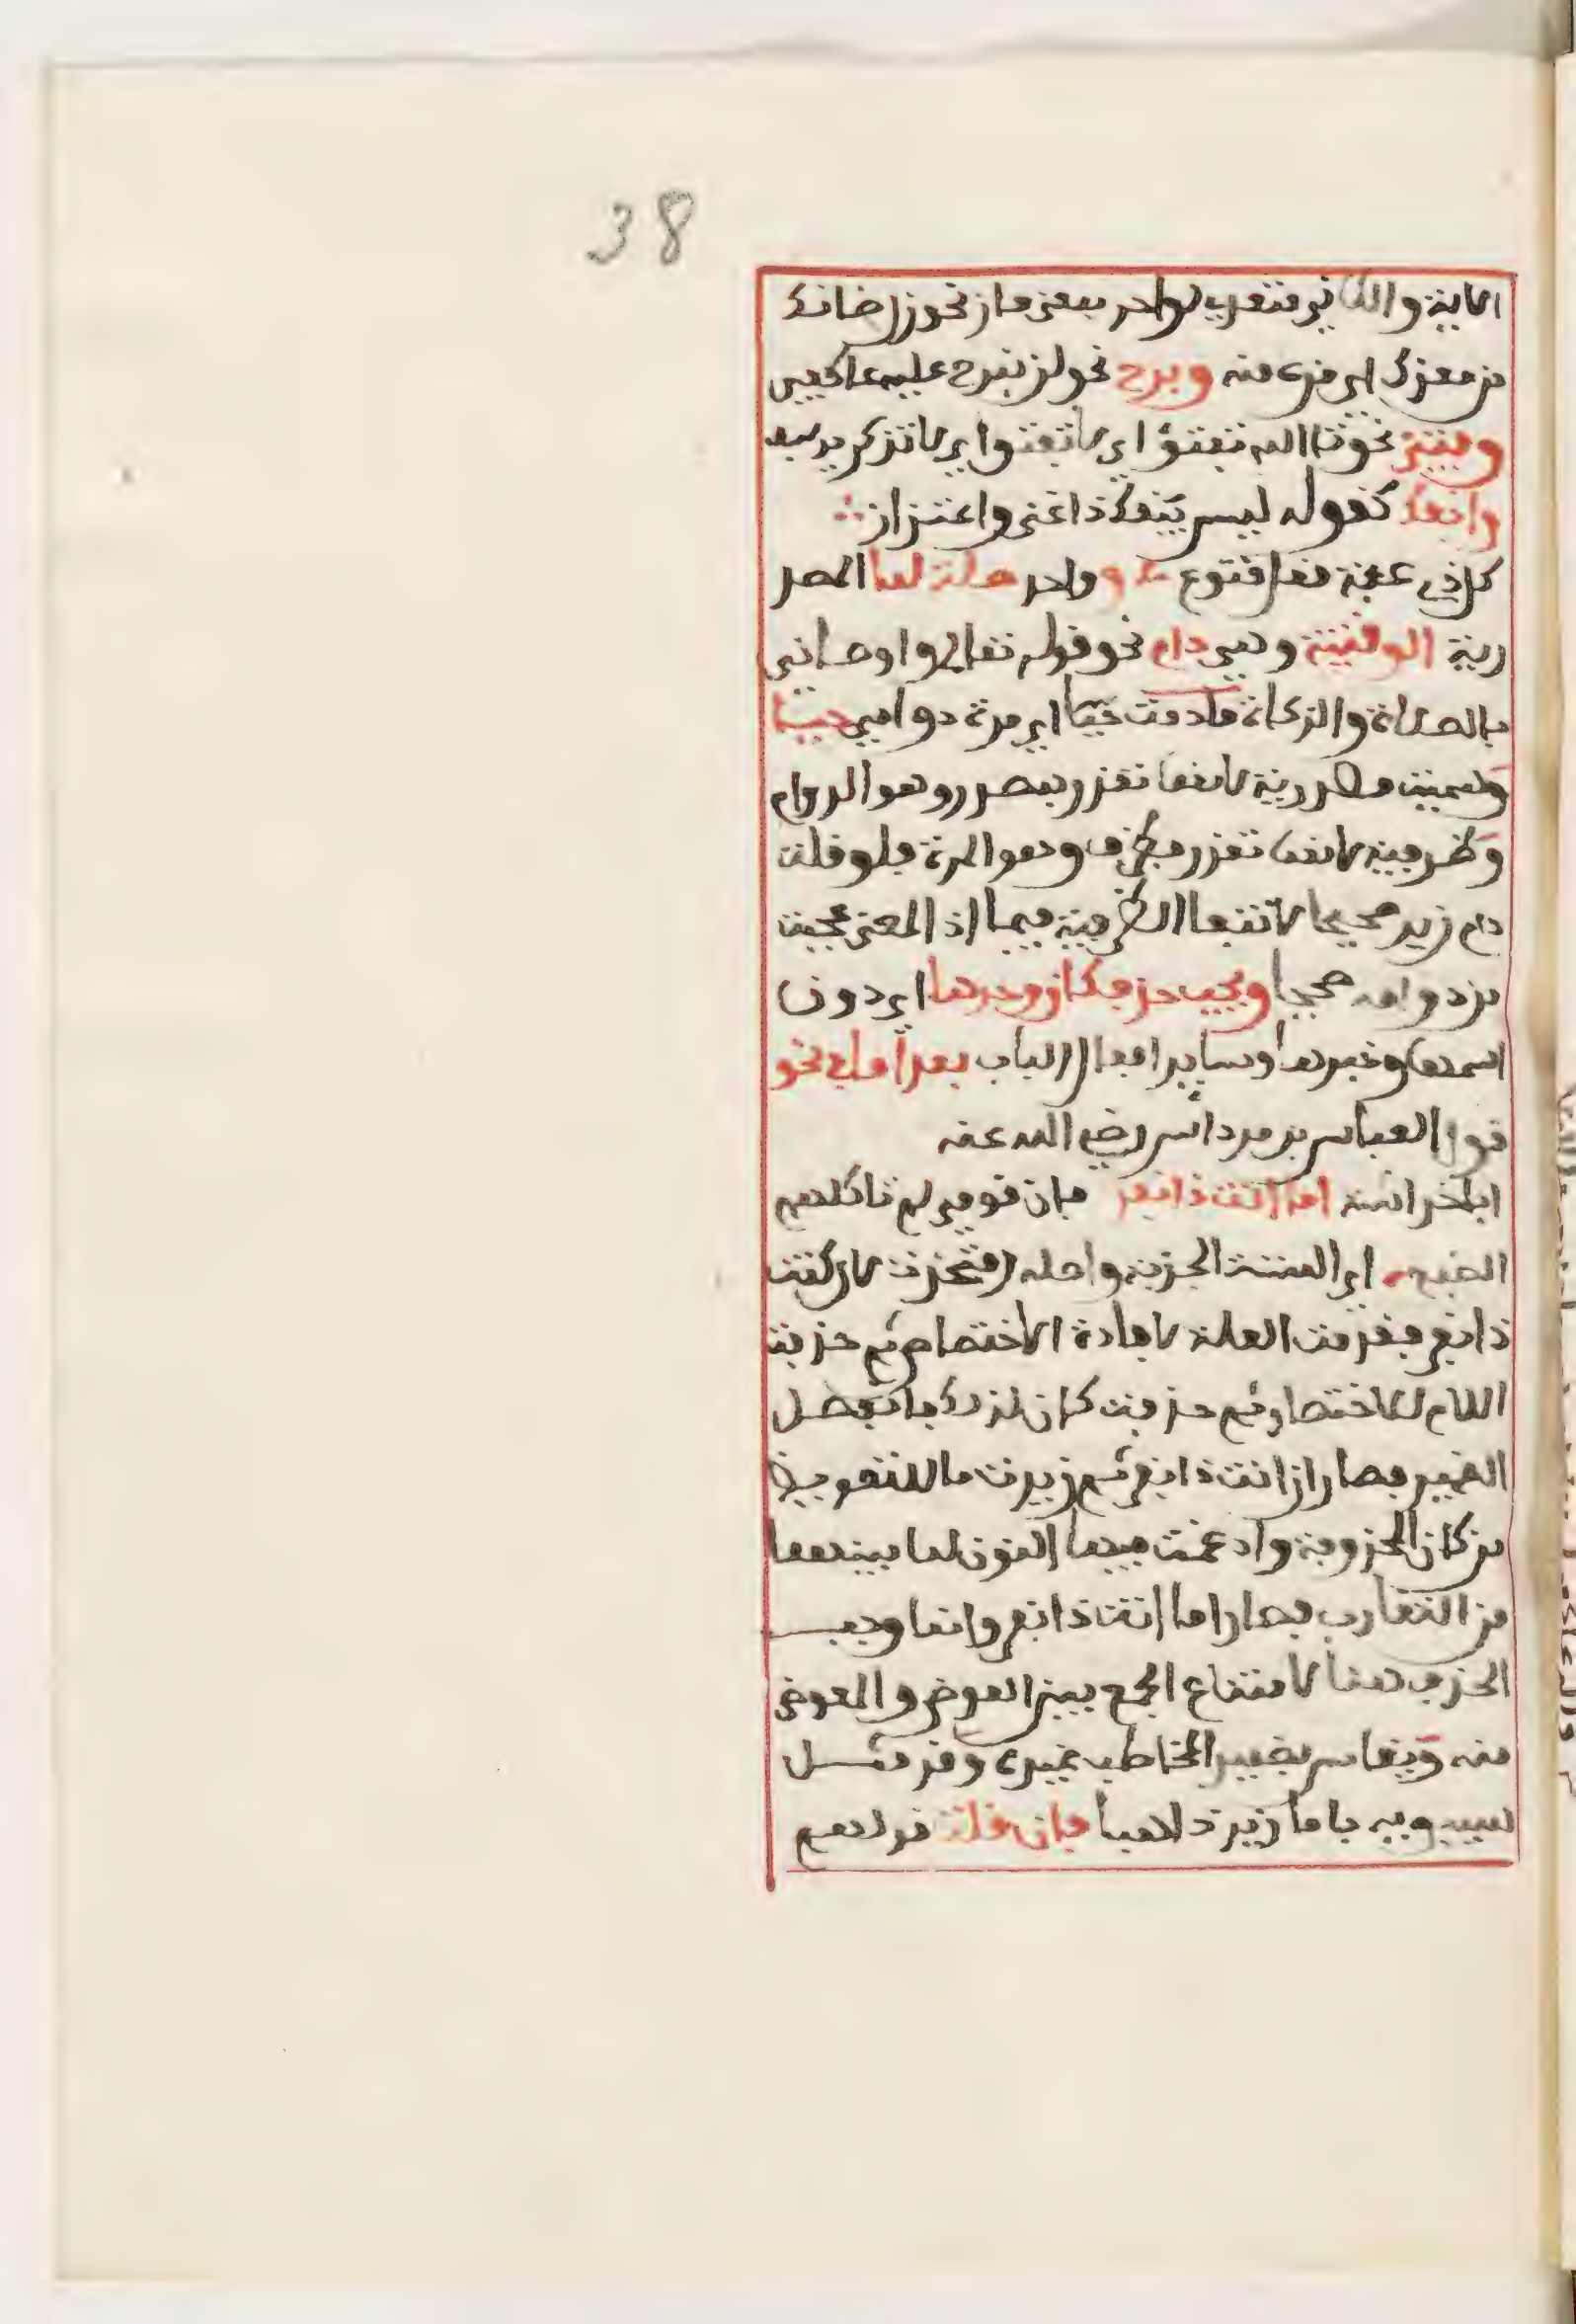 38
الآية والثاني متعد لواحد بمعنى ماز نحو زل ضانك
من معزك اي مزه منه وبرح نحو لن نبرح عليه عاكفين
وفتئ نحو تالله تفتؤا اي لا تفتوا اي لا تذكر يوسف
وانفك كقوله ليس ينفك ذا غنى واعتزاز
كل ذي عفة مقل قنوع و وواحد صلة لما المصد
رية الوقتية وهي دام نحو قوله تعالى واوصاني
بالصلاة والزكاة ما دمت حيا اي مدة دوامي حيا
وسميت مصدرية لانها تقدر بمصدر وهو الدوام
وظرفية لانها تقدر بظرف وهو المدة فلو قلت
دام زيد صحيحا لانتفا الظرفية فيما اذ المعنى عجبت
من دوامه صحيحا ويجب حذف كان وحدها اي دون
اسمها وخبرها وساير افعال الباب بعد اما في نحو
قول العباس بن مرداس رضي الله عنه
ابا خراشة اما انت ذا نفر فان قومي لم تاكلهم
الضبع اي السنة الجدبة واصله افتخرت لان كنت
ذا نفر فقدمت العلة لافادة الاختصاص ثم حذفت
اللام للاختصار ثم حذفت كان لذلك فانفصل
الضمير فصار ان انت ذا نفر ثم زيدت ما للتعويض
من كان المحذوفة وادغمت فيها النون لما بينهما
من التقارب فصار اما انت ذا نفر وانما وجب
الحذف هنا لامتناع الجمع بين العوض والمعوض
منه ويقاس بضمير المخاطب غيره وقد مثل
سيبويه باما زيد ذاهبا فان قلت قولهم